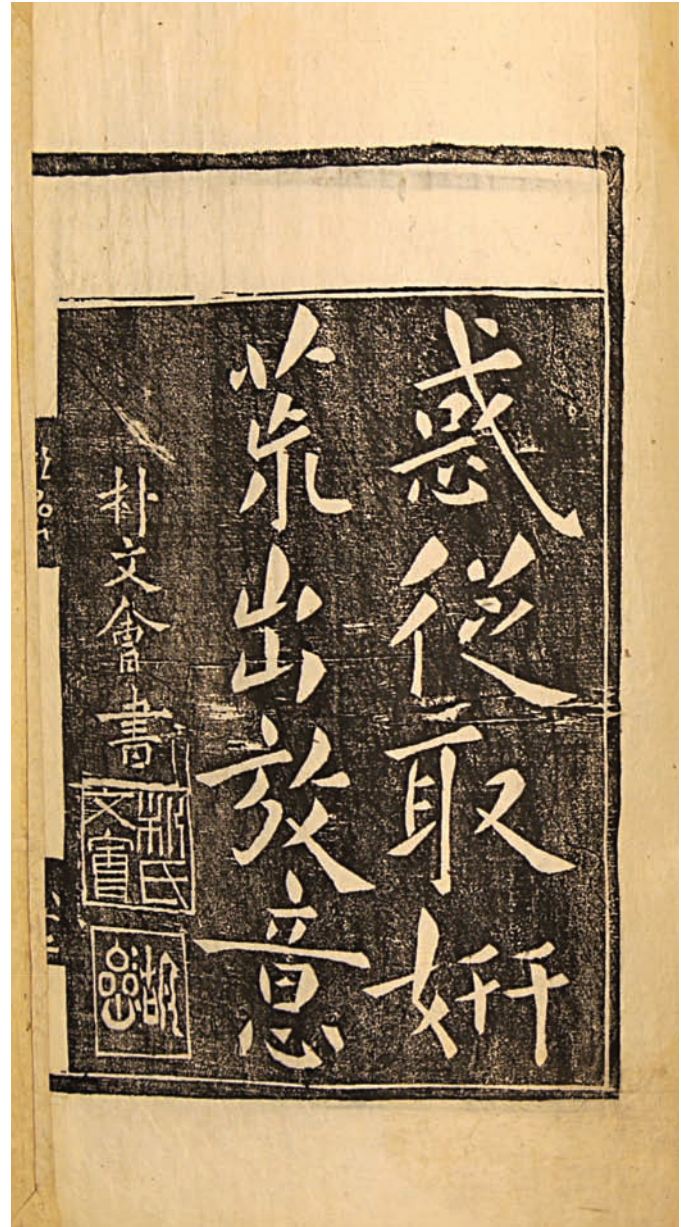 惑從取姸
荒出放意
朴文會書
朴氏
文會